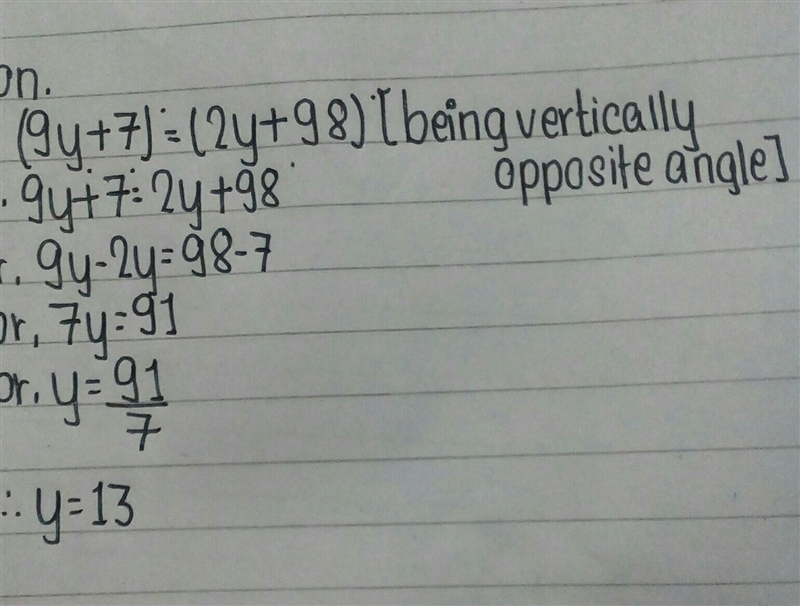 on.
(9y+7)°=(2y+98)°[being vertically
opposite angle]
. 9y+7°=2y+98°
r. 9y-2y=98-7
or, 7y=91
or. y=91/7
∴ y=13